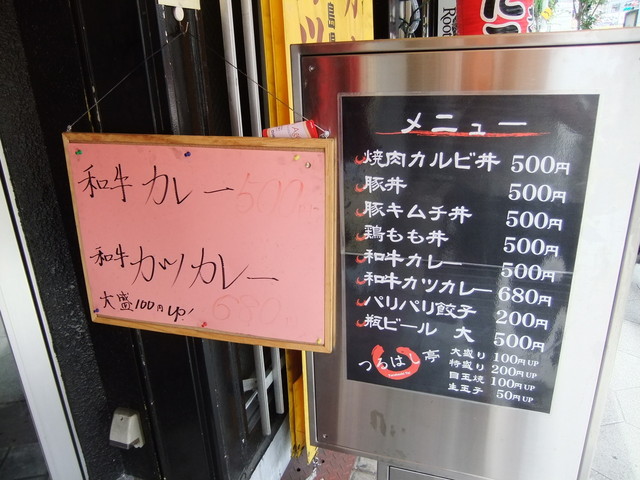 和牛 カレー 500円
和牛 カツカレー
大盛100円up!
680
メニュー
焼肉カルビ丼 500円
豚丼 500円
豚キムチ丼 500円
鶏もも丼 500円
和牛カレー 500円
和牛カツカレー 680円
パリパリ餃子 200円
瓶ビール 大 500円
つるはし亭
大盛り 100円UP
特盛り 200円UP
目玉焼 100円UP
生玉子 50円UP